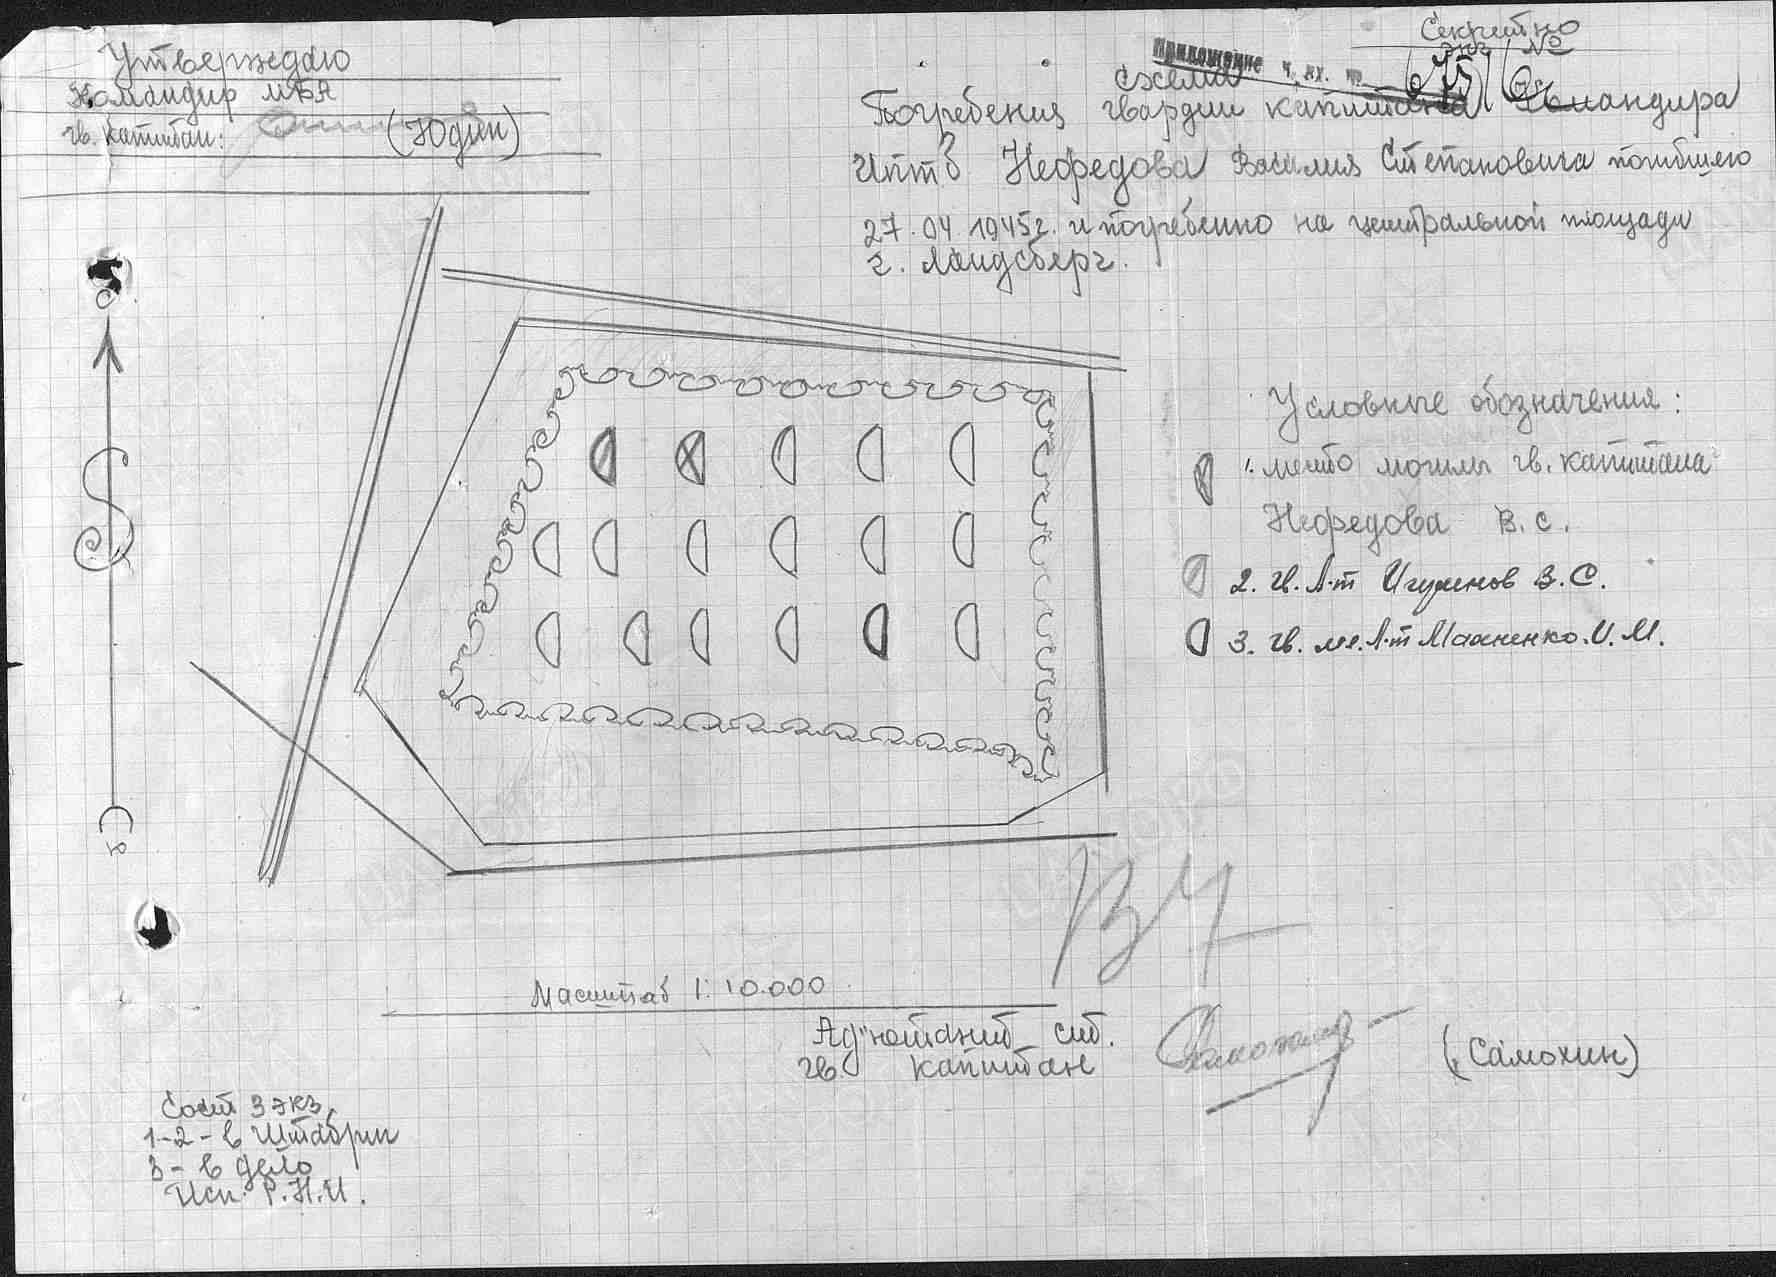 Утверждаю
Командир МБА
гв. капитан: (Юдин)
Секретно
экз №
Приложение
схема
Погребения гвардии капитана Командира
иптб Нефедова Василия Степановича погибшего
27.04.1945г. и погребенно на центральной площади
г. Ландсберг.
Условные обозначения:
1. место могилы гв. капитана
Нефедова В.С.
2. гв. Л-т Игуменов В.С.
3. гв. мл. Л-т Махненко И.М.
Масштаб 1:10.000
Адъютант
гв капитан (Самохин)
Сост 3 экз.
1-2- в Штабрм
3- в дело
Исп. Р.Н.И.